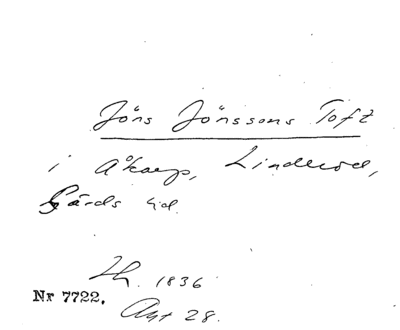 Jöns Jönssons Toft
i Åkarp, Linderöd,
Gärds hd.
Th. 1836
Nr 7722.
Apr 28.